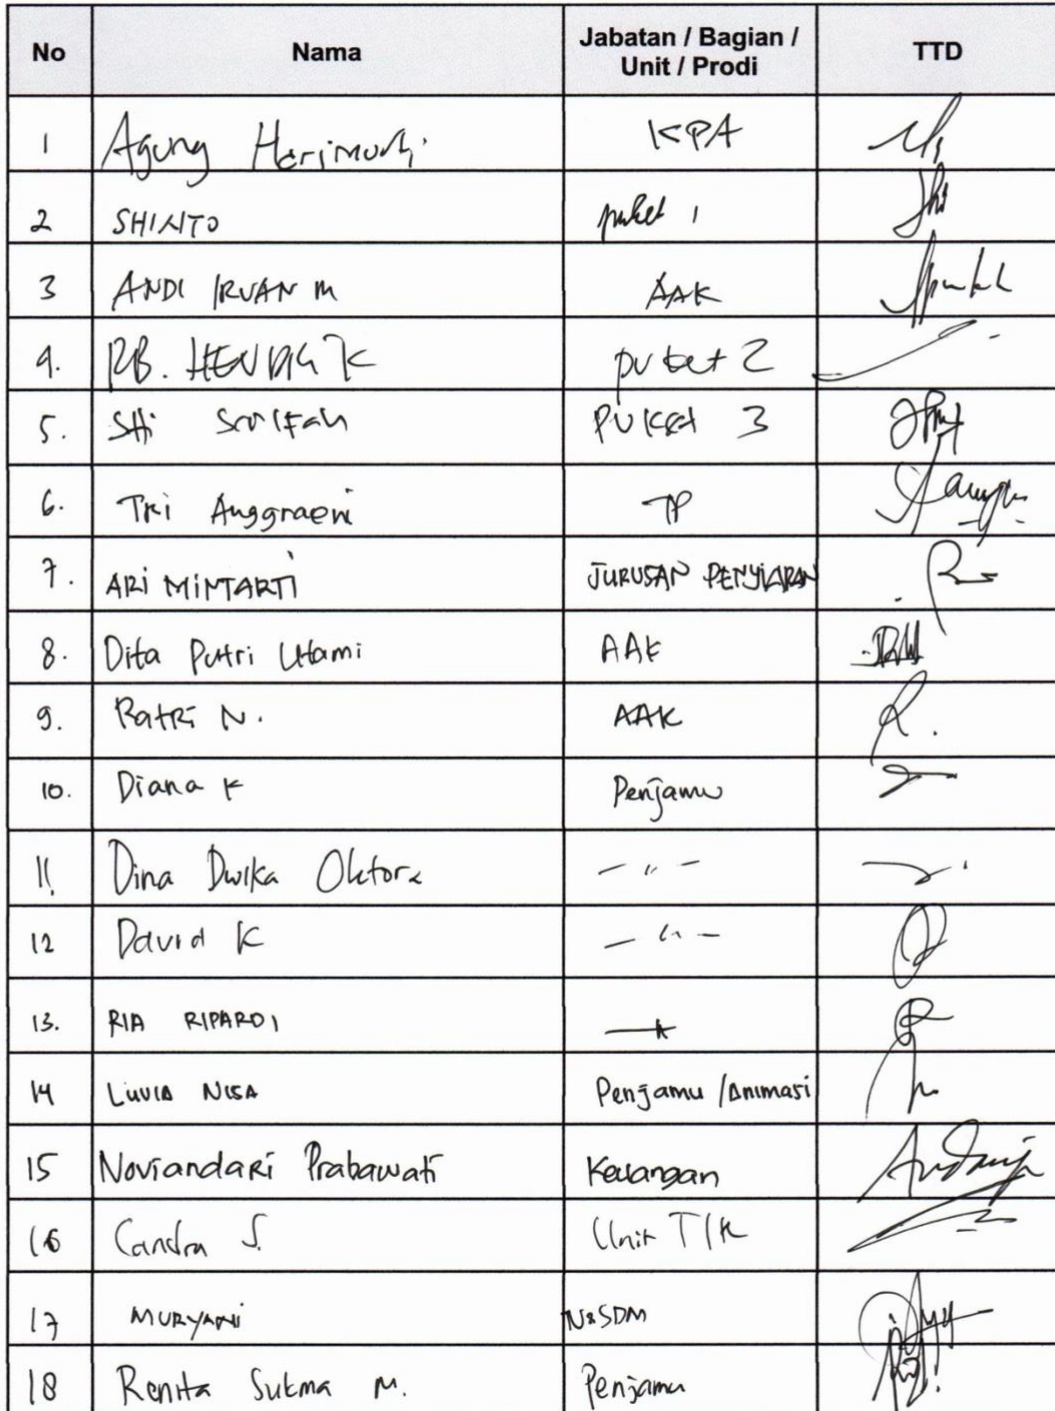 No Nama Jabatan / Bagian / Unit / Prodi TTD
1 Agung Harimurti KPA
2 SHINTO puket 1
3 ANDI IRVAN M AAK
4. RB. HENDRI K puket 2
5. Puket 3
6. Tri Anggraeni TP
7. ARI MINTARTI JURUSAN PENYIARAN
8. Dita Putri Utami AAK
9. Ratri N. AAK
10. Diana K Penjamu
11. Dina Dwika Oktora - " -
12 David K - " -
13. RIA RIPARDI
14 LUVIA NISA Penjamu / Animasi
15 Noviandari Prabawati Keuangan
16 Candra S. Unit TIK
17 MURYANI
18 Renita Sukma M. Penjamu